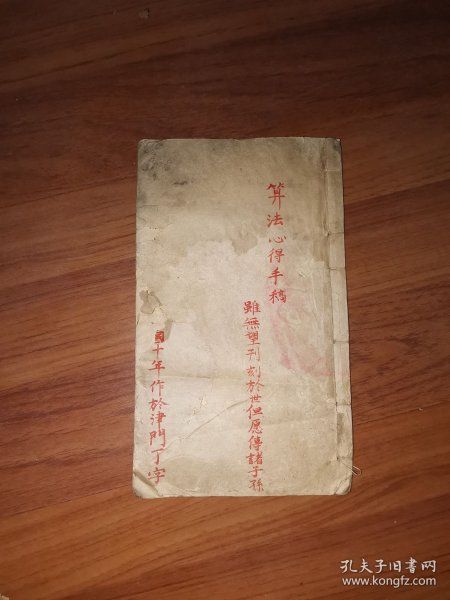 算法心得手稿
雖無望刊刻於世但愿傳諸子孫
國十年作於津門丁字
孔夫子旧书网
www.kongfz.com